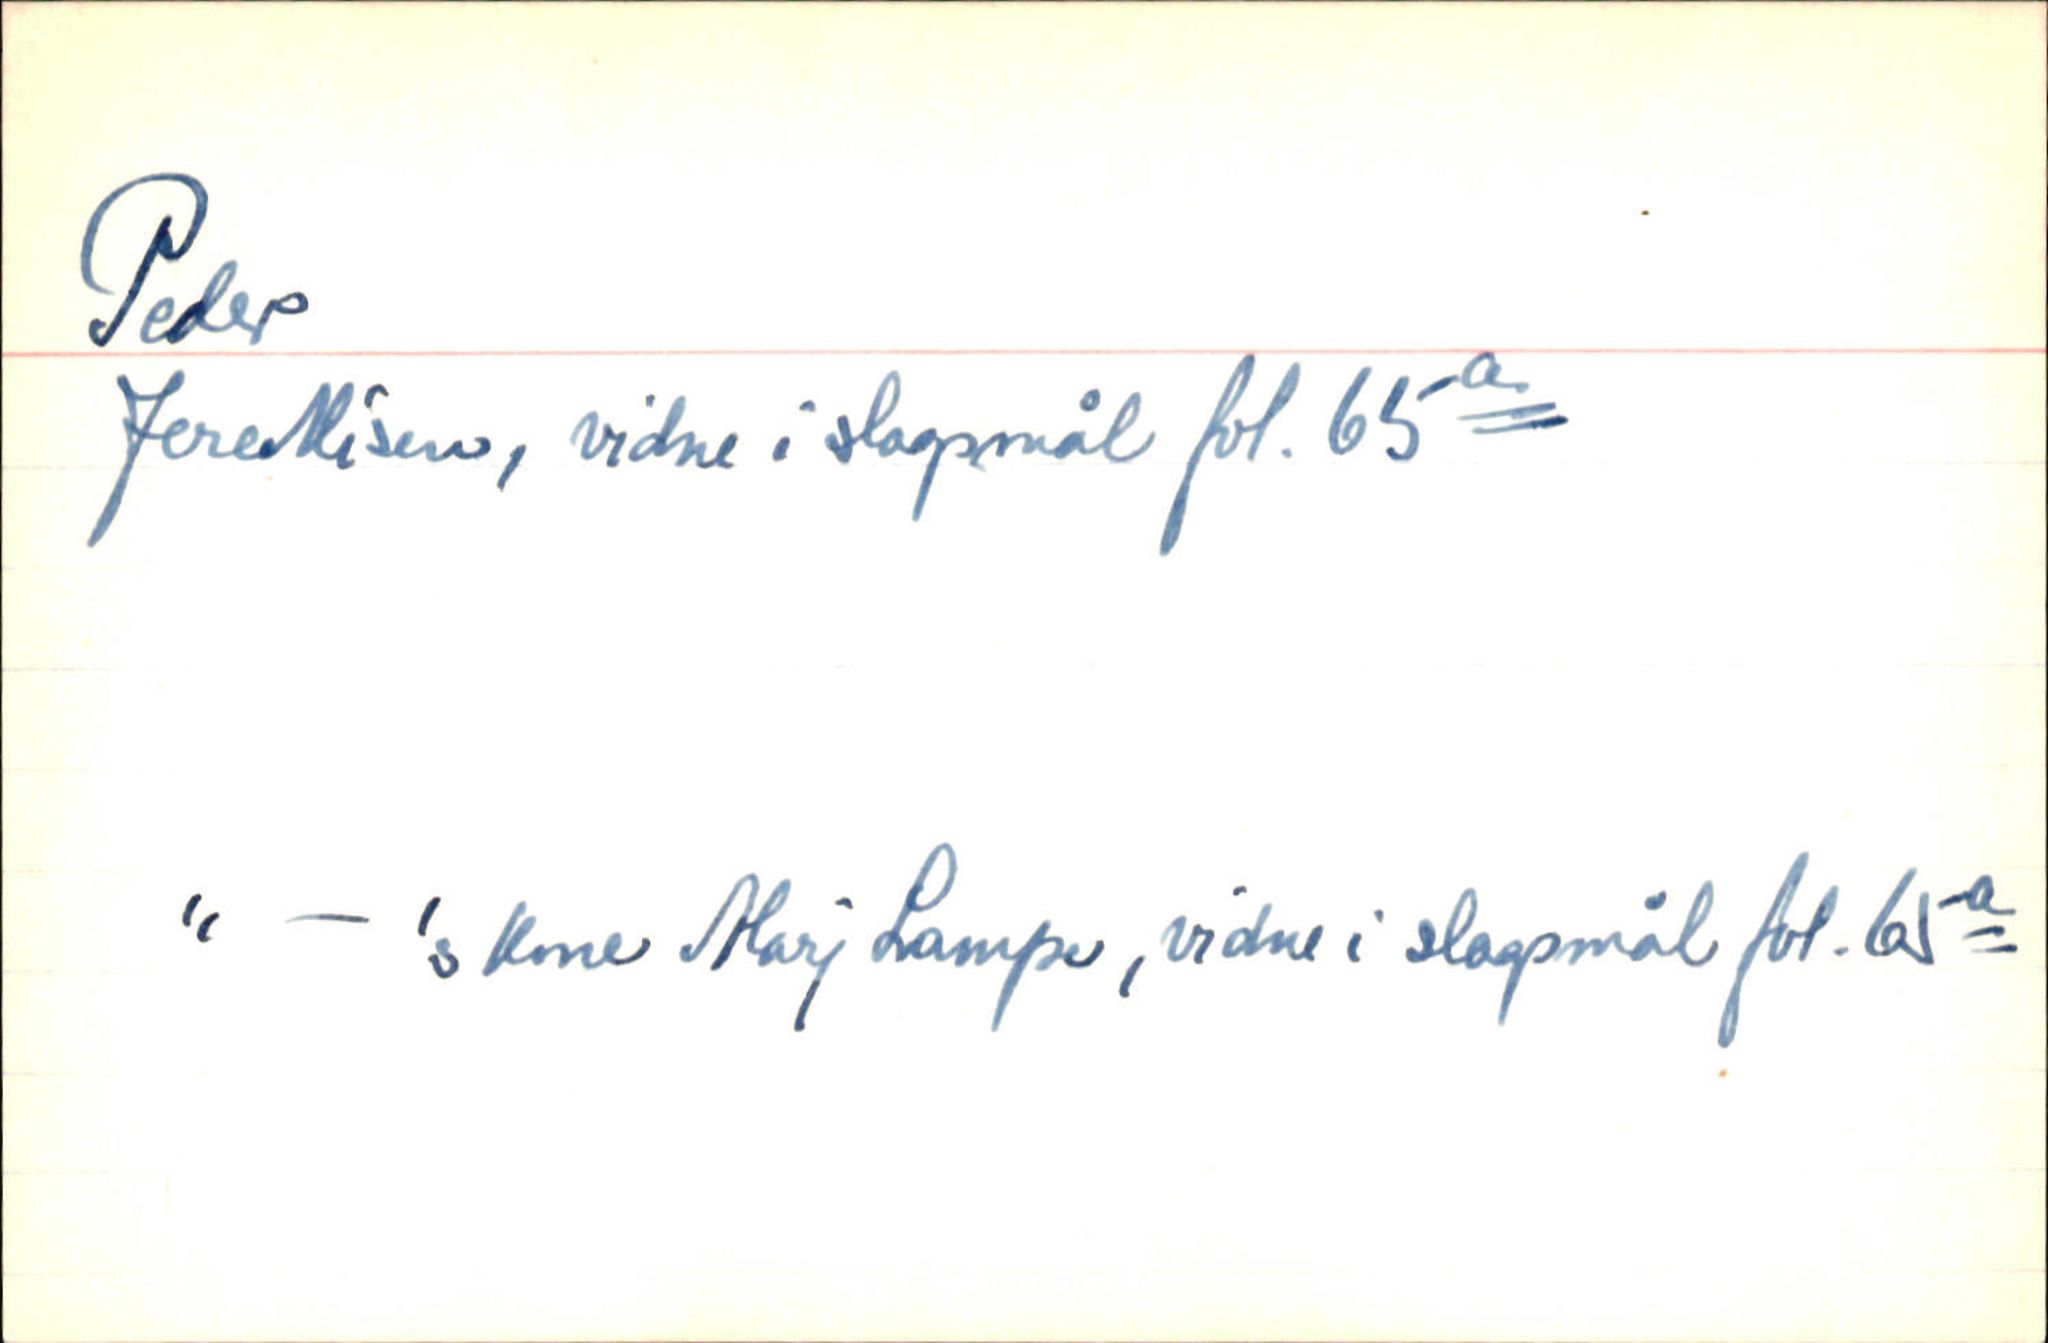 Peder
Jeremisen, vidne i slagsmål fol. 65a
" — 's kone Marj Lampe, vidne i slagsmål fol. 65a